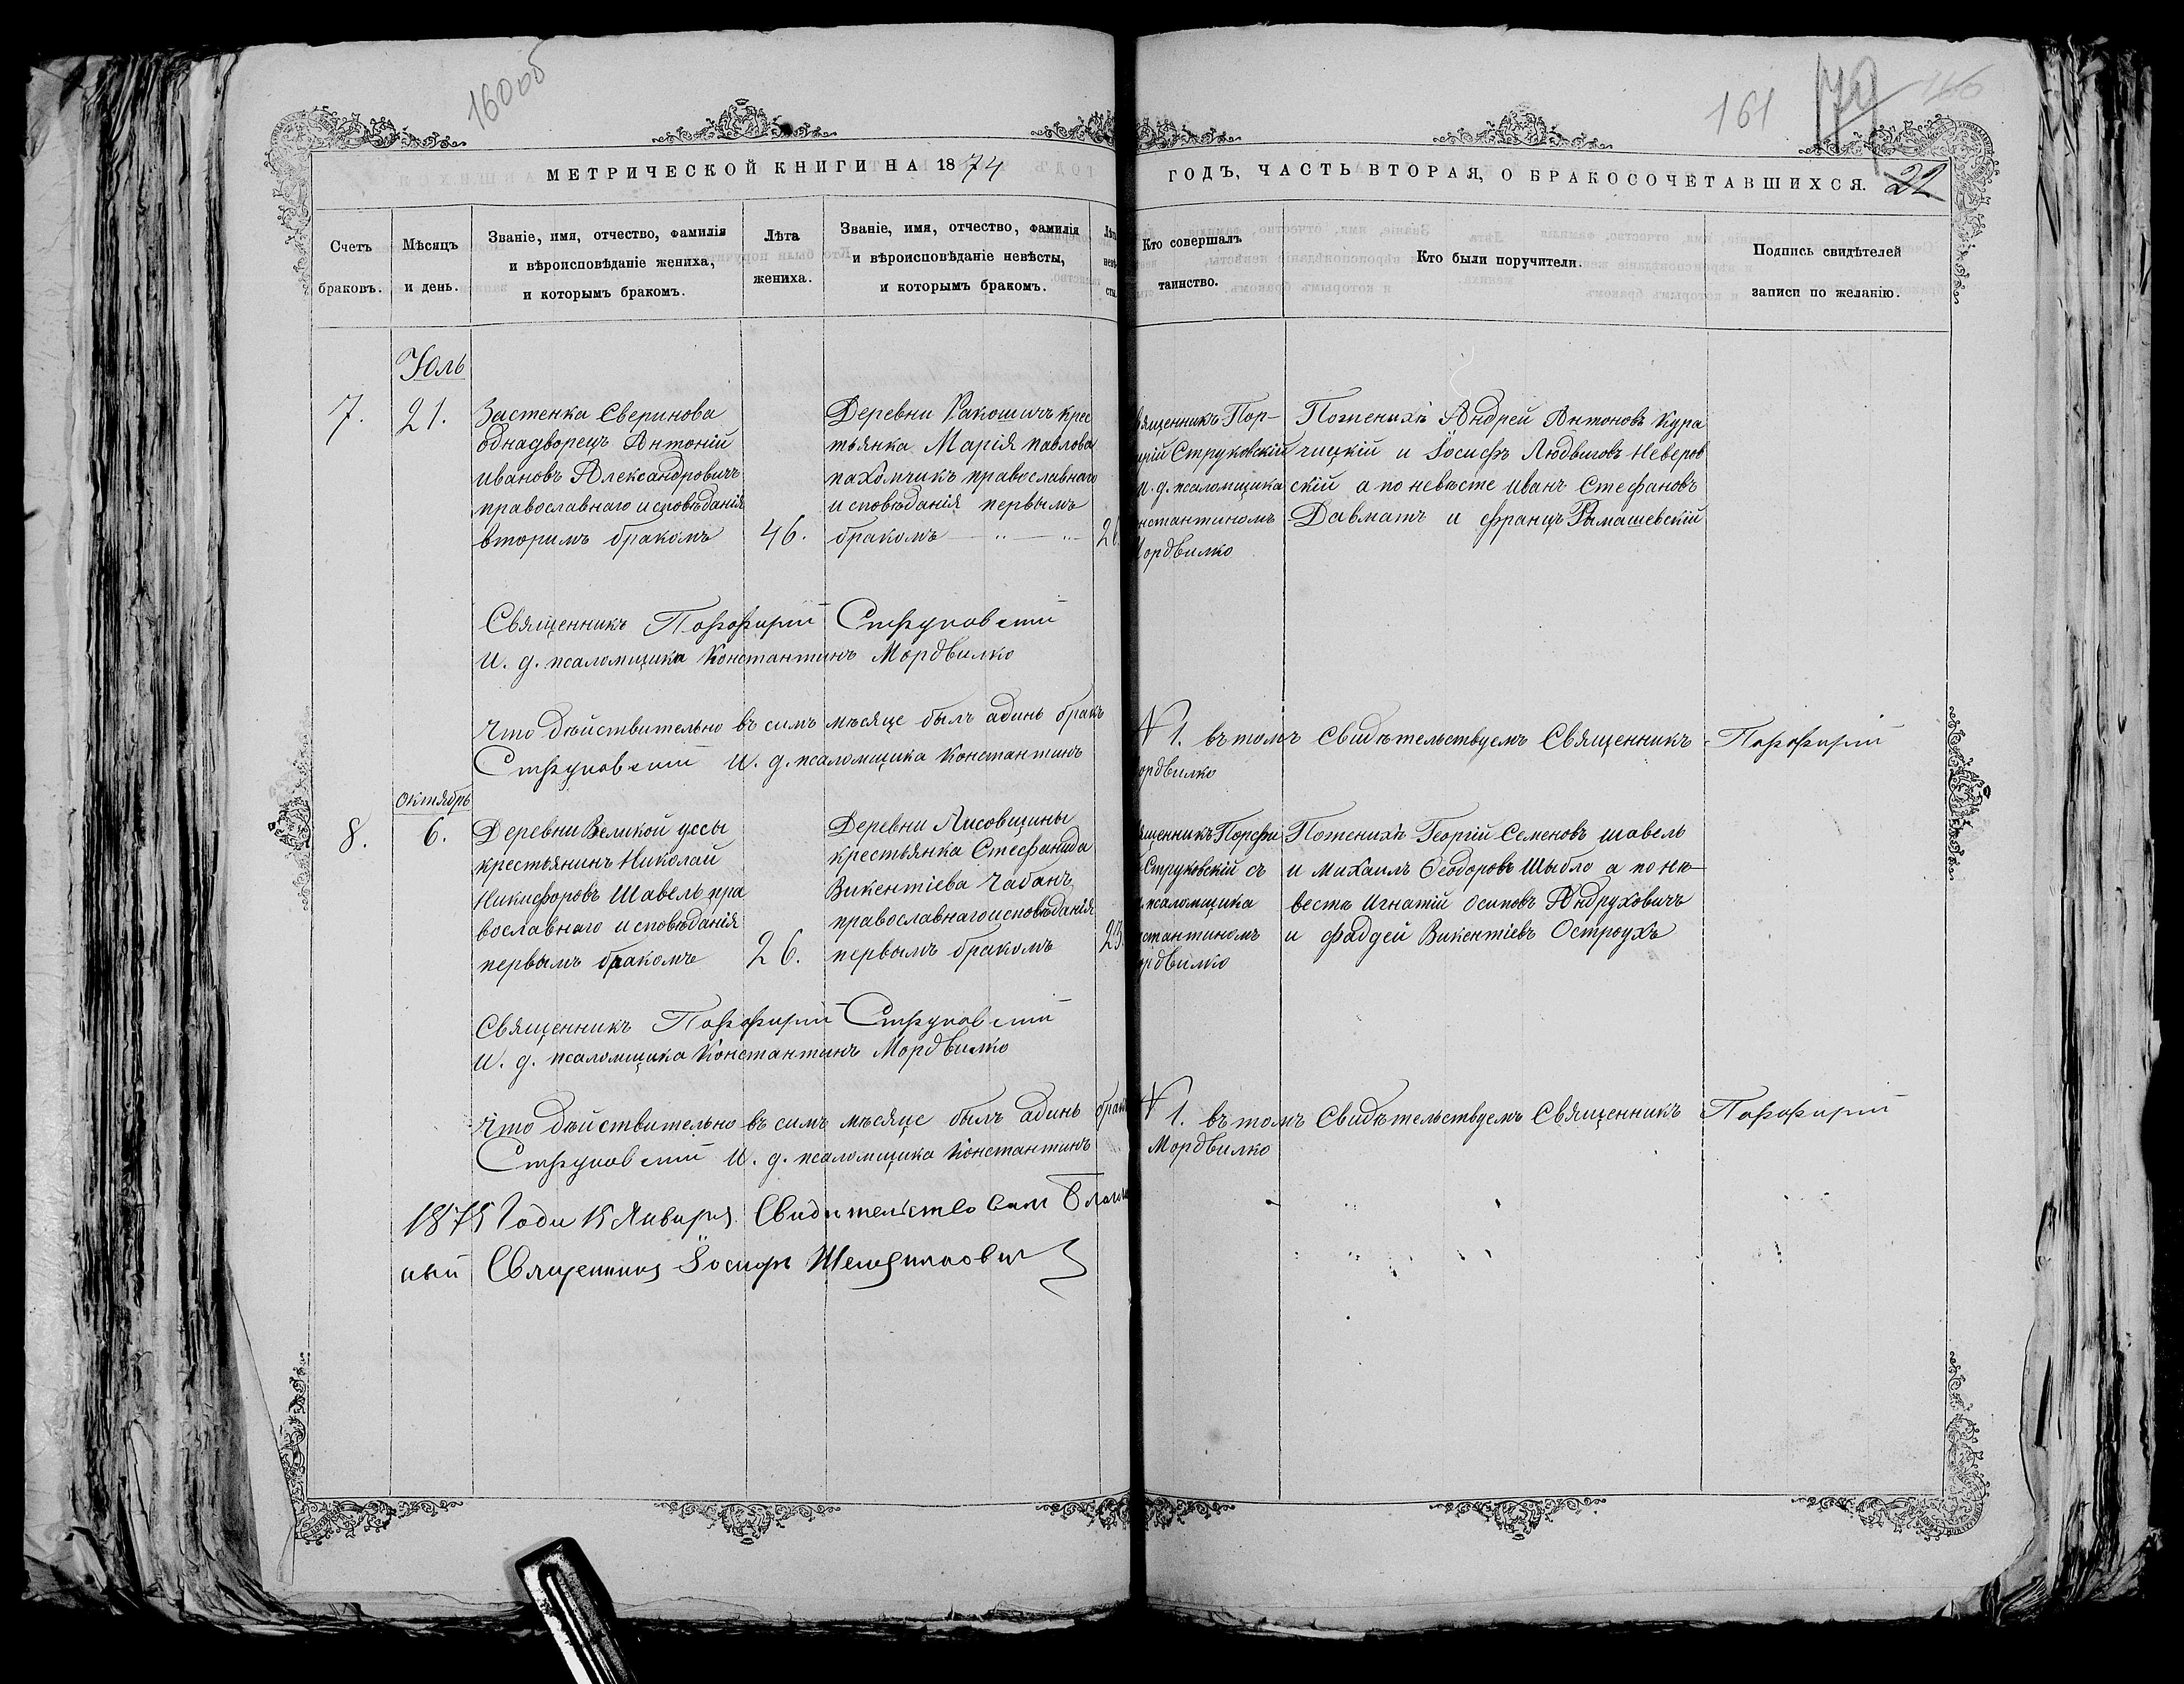 160 об
161
МЕТРИЧЕСКОЙ КНИГИ НА 1874
ГОДЪ, ЧАСТЬ ВТОРАЯ, О БРАКОСОЧЕТАВШИХСЯ. 22
Счетъ браковъ.
Мѣсяцъ и день.
Званіе, имя, отчество, фамилія
и вѣроисповѣданіе жениха,
и которымъ бракомъ.
Лѣта
жениха.
Званіе, имя, отчество, фамилія
и вѣроисповѣданіе невѣсты,
и которымъ бракомъ.
Кто совершалъ
таинство.
Кто были поручители.
Подпись свидѣтелей
записи по желанію.
Юль
7.
21.
Застенка Сверинова
однадворецъ Антоній
ивановъ Александровичъ
православнаго исповѣданія
вторимъ бракомъ
46.
Деревни Ракошичъ крес
тьянка Марія павлова
пахомчикъ православнаго
исповѣданія первымъ
бракомъ
вященникъ Пор-
ирій Струковскій
и. д. псаломщика
нстантиномъ
Мордвилко
Поженихѣ Андрей Антоновъ Кура
гицкій и Іосифъ Людвиговъ Неверов
скій а по невѣсте иванъ Стефановъ
Давматъ и францъ Рымашевскій
Священникъ Порфирій Струковскій
И. д. псаломщика Константинъ Мордвилко
Что дѣйствительно въ симъ мѣсяце былъ адинъ бракъ
№ 1. въ томъ Свидѣтельствуемъ Священникъ Порфирій
Струковскій И. д. псаломщика Константинъ
ордвилко
октябрь
8.
6.
Деревни Великой уссы
крестьянинъ Николай
Никифоровъ Шавель пра
вославнаго исповѣданія
первымъ бракомъ
26.
Деревни Лисовщины
крестьянка Стефанида
Викентіева Чабанъ
православнаго исповѣданія
первымъ бракомъ
23.
ященникъ Порфи
Струковскій съ
псаломщика
стантиномъ
рдвилко
Поженихѣ Георгій Семеновъ шавель
и михаилъ Ѳеодоровъ Шыбло а по нѣ-
весте Игнатій осиповъ Андруховичъ
и фаддей Викентіевъ Остроухъ
Священникъ Порфирій Струковскій
И. д. псаломщика Константинъ Мордвилко
Что дѣйствительно въ симъ мѣсяце былъ адинъ брак
№ 1. въ томъ Свидѣтельствуемъ Священникъ Порфирій
Струковскій И. д. псаломщика Константинъ
Мордвилко
1875 Года 15 Января Свидѣтельствовалъ Благочи
ный Священникъ Іосифъ